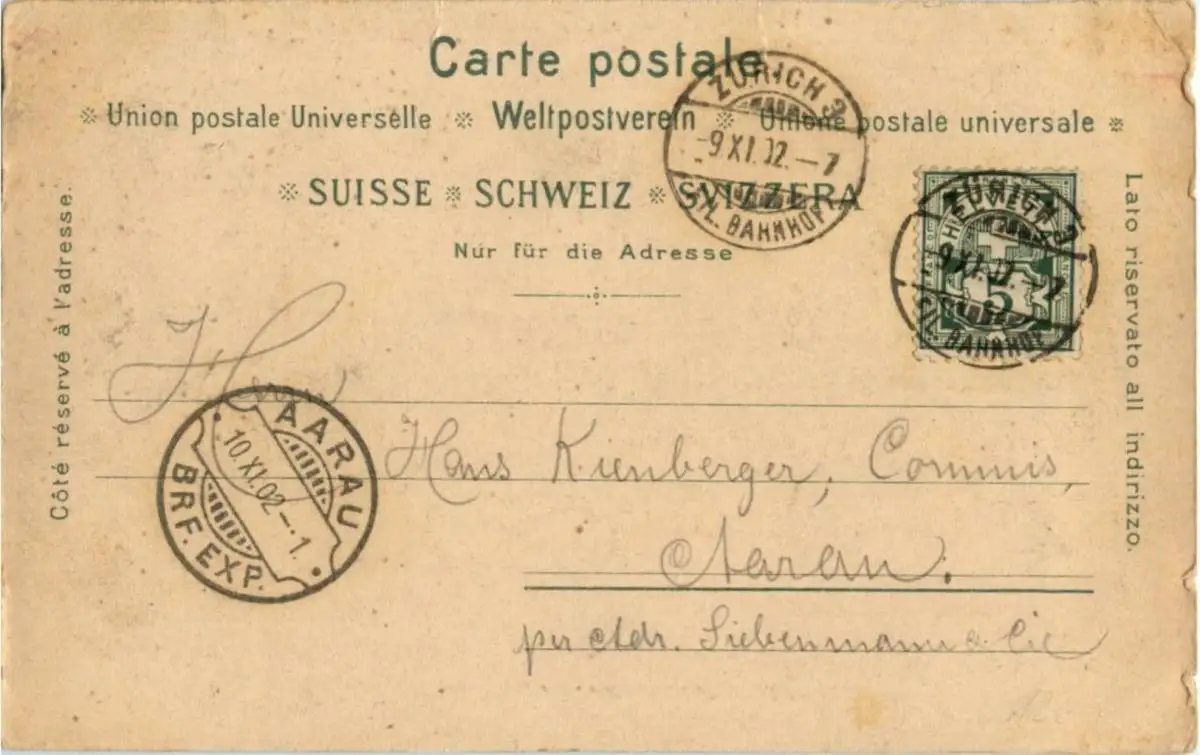 Carte postale
※ Union postale Universelle ※ Weltpostverein ※ Unione postale universale ※
※ SUISSE ※ SCHWEIZ ※ SVIZZERA
Nur für die Adresse
ZÜRICH 3
-9 XI.02.-7
SIL. BAHNHOF
HELVETIA
5
ZÜRICH 3
9 XI.02.-7
SIL. BAHNHOF
Côté réservé à l'adresse.
Lato riservato all indirizzo.
H
AARAU
10 XI.02-.1.
BRF. EXP.
Hans Kienberger, Commis,
Aarau.
per Adr. Siebenmann & Cie